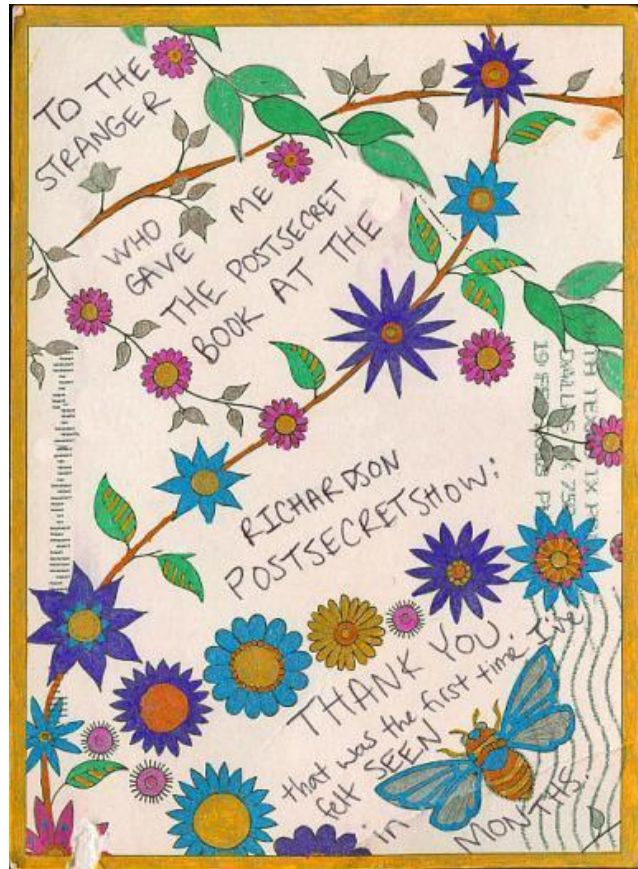 TO THE
STRANGER
WHO
GAVE ME
THE POSTSECRET
BOOK AT THE
RICHARDSON
POSTSECRETSHOW:
THANK YOU.
that was the first time I've
felt SEEN
in MONTHS.
DALLAS
19 F